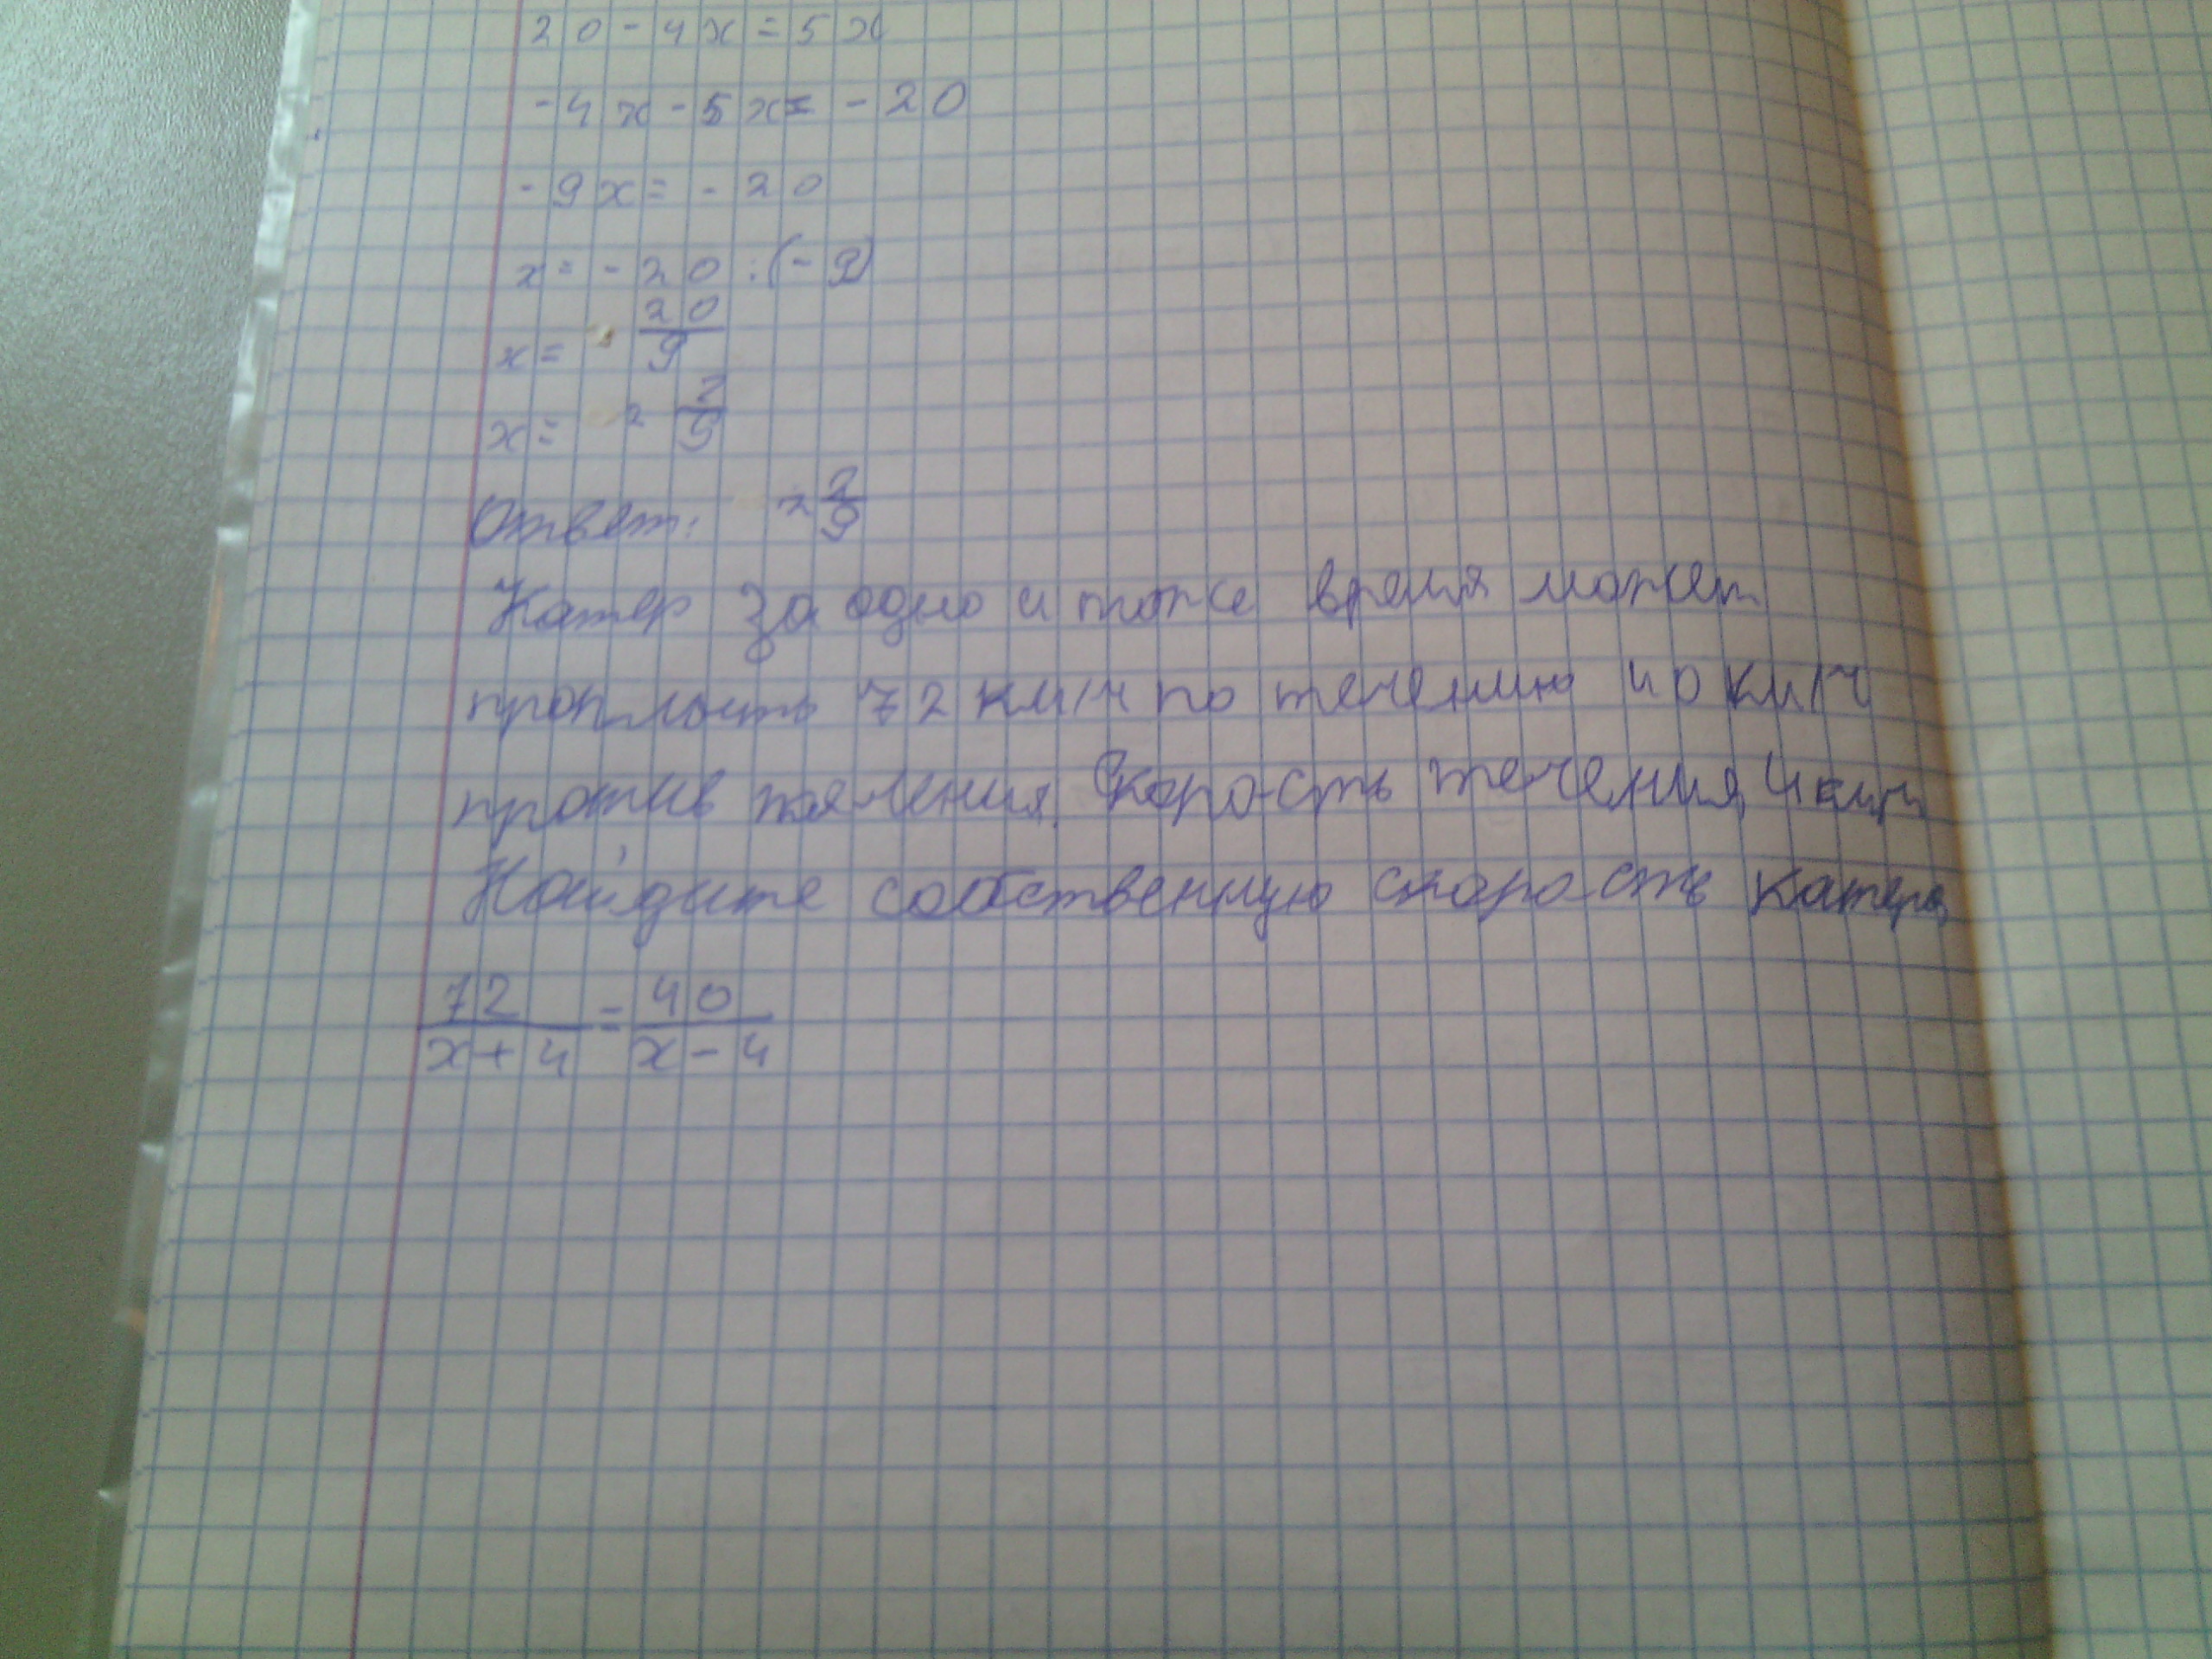 20-4x=5x
-4x-5x=-20
-9x=-20
x=-20:(-9)
x=20/9
x=2 2/9
Ответ: 2 2/9
Катер за одно и тоже время может
проплыть 72 км/ч по течению 40 км/ч
против течения. Скорость течения 4 км/ч
Найдите собственную скорость катера
72/x+4=40/x-4